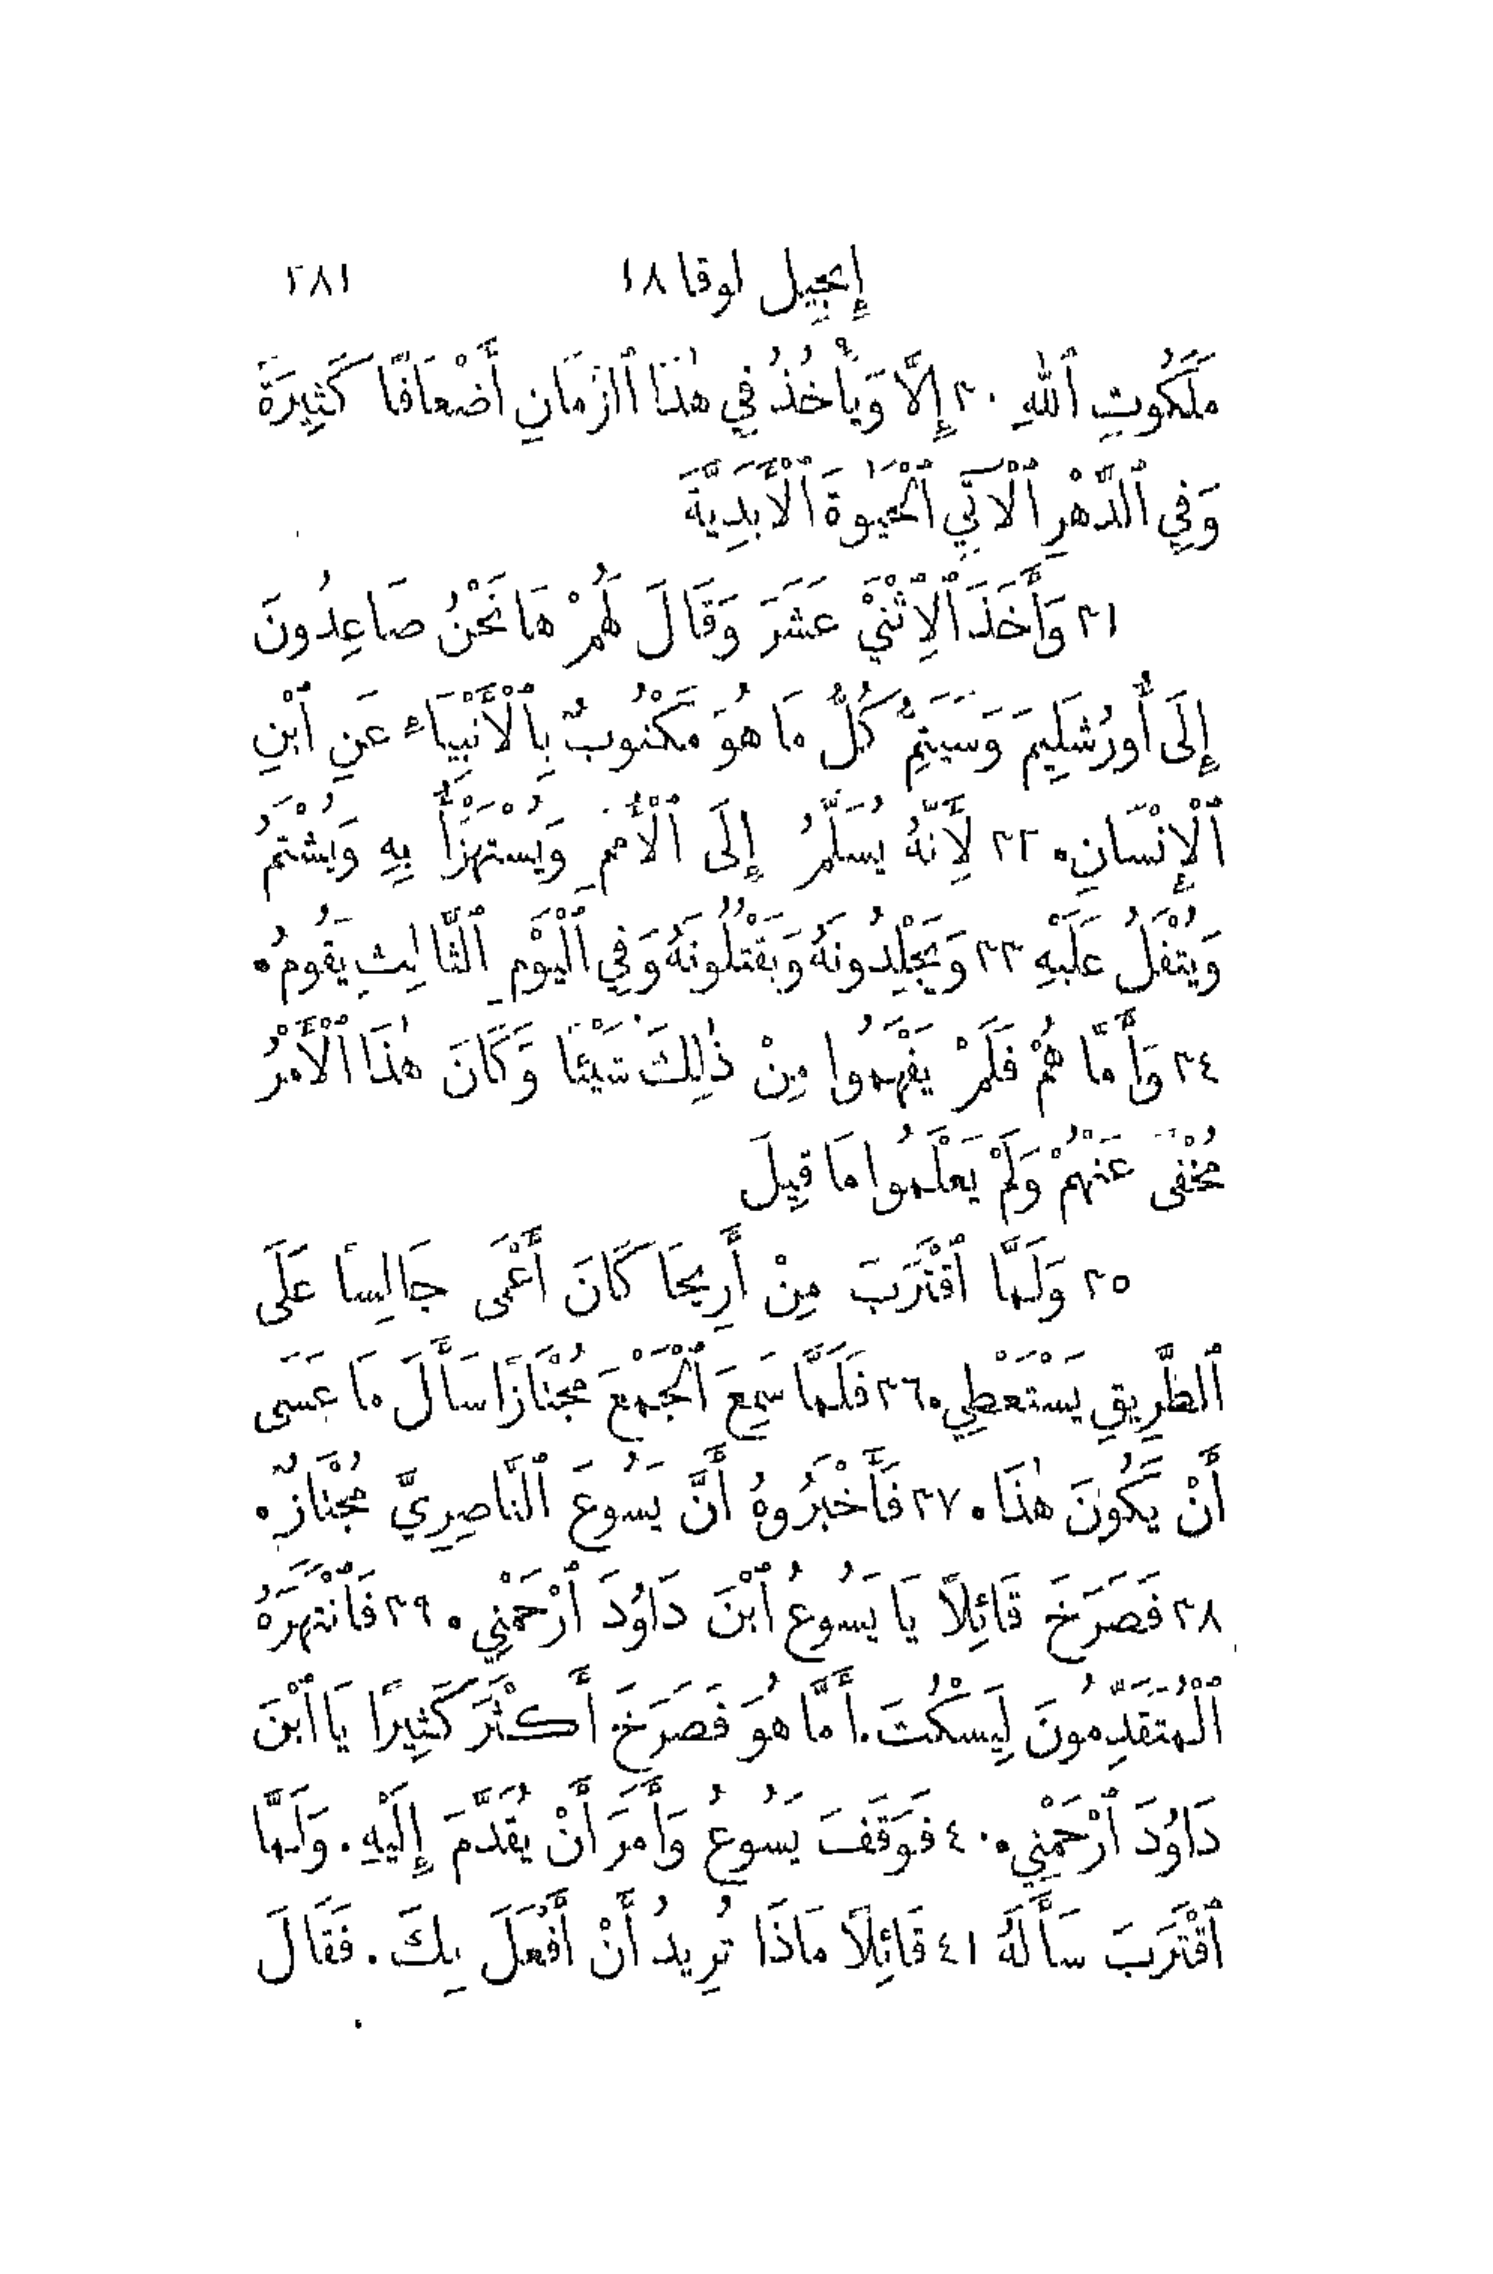 إِنْجِيل لوقا ١٨ ٢٨١
مَلَكُوتِ ٱللهِ ٣٠ إِلَّا وَيَأْخُذُ فِي هٰذَا ٱلزَّمَانِ أَضْعَافًا كَثِيرَةً
وَفِي ٱلدَّهْرِ ٱلْآتِي ٱلْحَيٰوةَ ٱلْأَبَدِيَّةَ
٣١ وَأَخَذَ ٱلِٱثْنَيْ عَشَرَ وَقَالَ لَهُمْ هَا نَحْنُ صَاعِدُونَ
إِلَى أُورُشَلِيمَ وَسَيَتِمُّ كُلُّ مَا هُوَ مَكْتُوبٌ بِٱلْأَنْبِيَاءِ عَنِ ٱبْنِ
ٱلْإِنْسَانِ. ٣٢ لِأَنَّهُ يُسَلَّمُ إِلَى ٱلْأُمَمِ وَيُسْتَهْزَأُ بِهِ وَيُشْتَمُ
وَيُتْفَلُ عَلَيْهِ ٣٣ وَيَجْلِدُونَهُ وَيَقْتُلُونَهُ وَفِي ٱلْيَوْمِ ٱلثَّالِثِ يَقُومُ.
٣٤ وَأَمَّا هُمْ فَلَمْ يَفْهَمُوا مِنْ ذٰلِكَ شَيْئًا وَكَانَ هٰذَا ٱلْأَمْرُ
مُخْفًى عَنْهُمْ وَلَمْ يَعْلَمُوا مَا قِيلَ
٣٥ وَلَمَّا ٱقْتَرَبَ مِنْ أَرِيحَا كَانَ أَعْمَى جَالِسًا عَلَى
ٱلطَّرِيقِ يَسْتَعْطِي. ٣٦ فَلَمَّا سَمِعَ ٱلْجَمْعَ مُجْتَازًا سَأَلَ مَا عَسَى
أَنْ يَكُونَ هٰذَا. ٣٧ فَأَخْبَرُوهُ أَنَّ يَسُوعَ ٱلنَّاصِرِيَّ مُجْتَازٌ.
٣٨ فَصَرَخَ قَائِلًا يَا يَسُوعُ ٱبْنَ دَاوُدَ ٱرْحَمْنِي. ٣٩ فَٱنْتَهَرَهُ
ٱلْمُتَقَدِّمُونَ لِيَسْكُتَ. أَمَّا هُوَ فَصَرَخَ أَكْثَرَ كَثِيرًا يَا ٱبْنَ
دَاوُدَ ٱرْحَمْنِي. ٤٠ فَوَقَفَ يَسُوعُ وَأَمَرَ أَنْ يُقَدَّمَ إِلَيْهِ. وَلَمَّا
ٱقْتَرَبَ سَأَلَهُ ٤١ قَائِلًا مَاذَا تُرِيدُ أَنْ أَفْعَلَ بِكَ. فَقَالَ